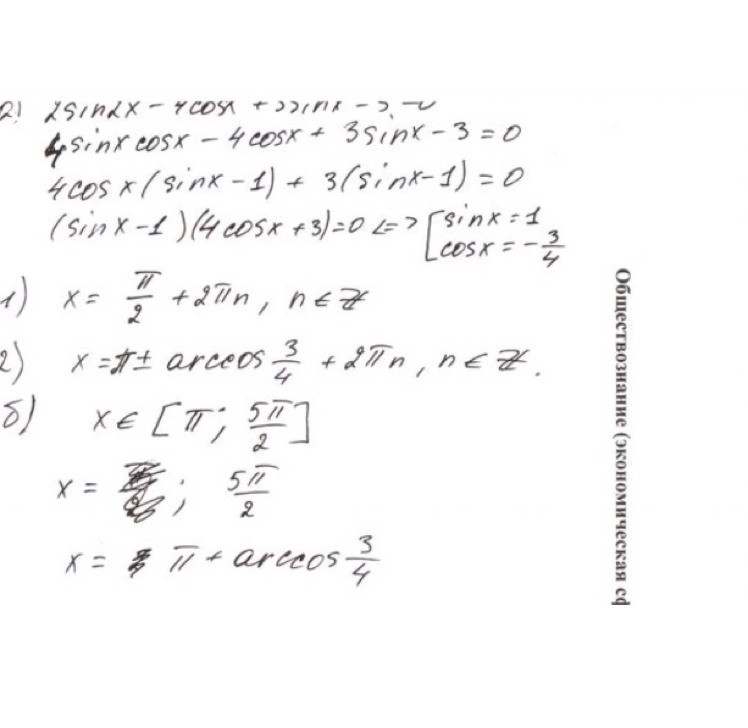 2) 2sin2x - 4cosx + 3sinx - 3 = 0
4sinx cosx - 4cosx + 3sinx - 3 = 0
4cosx(sinx - 1) + 3(sinx - 1) = 0
(sinx - 1)(4cosx + 3) = 0 <=> [sinx = 1
cosx = -3/4
1) x = π/2 + 2πn, n ∈ Z
2) x = π ± arccos 3/4 + 2πn, n ∈ Z.
б) x ∈ [π; 5π/2]
x = ; 5π/2
x = π + arccos 3/4
Обществознание (экономическая сф